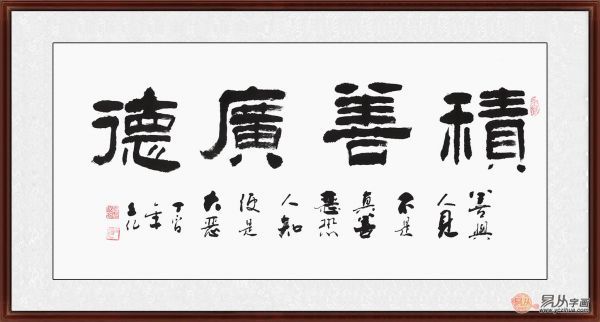 積善廣德
善與
人見
不是
真善
惡恐
人知
便是
大惡
丁酉
年
易从字画
www.yczihua.com